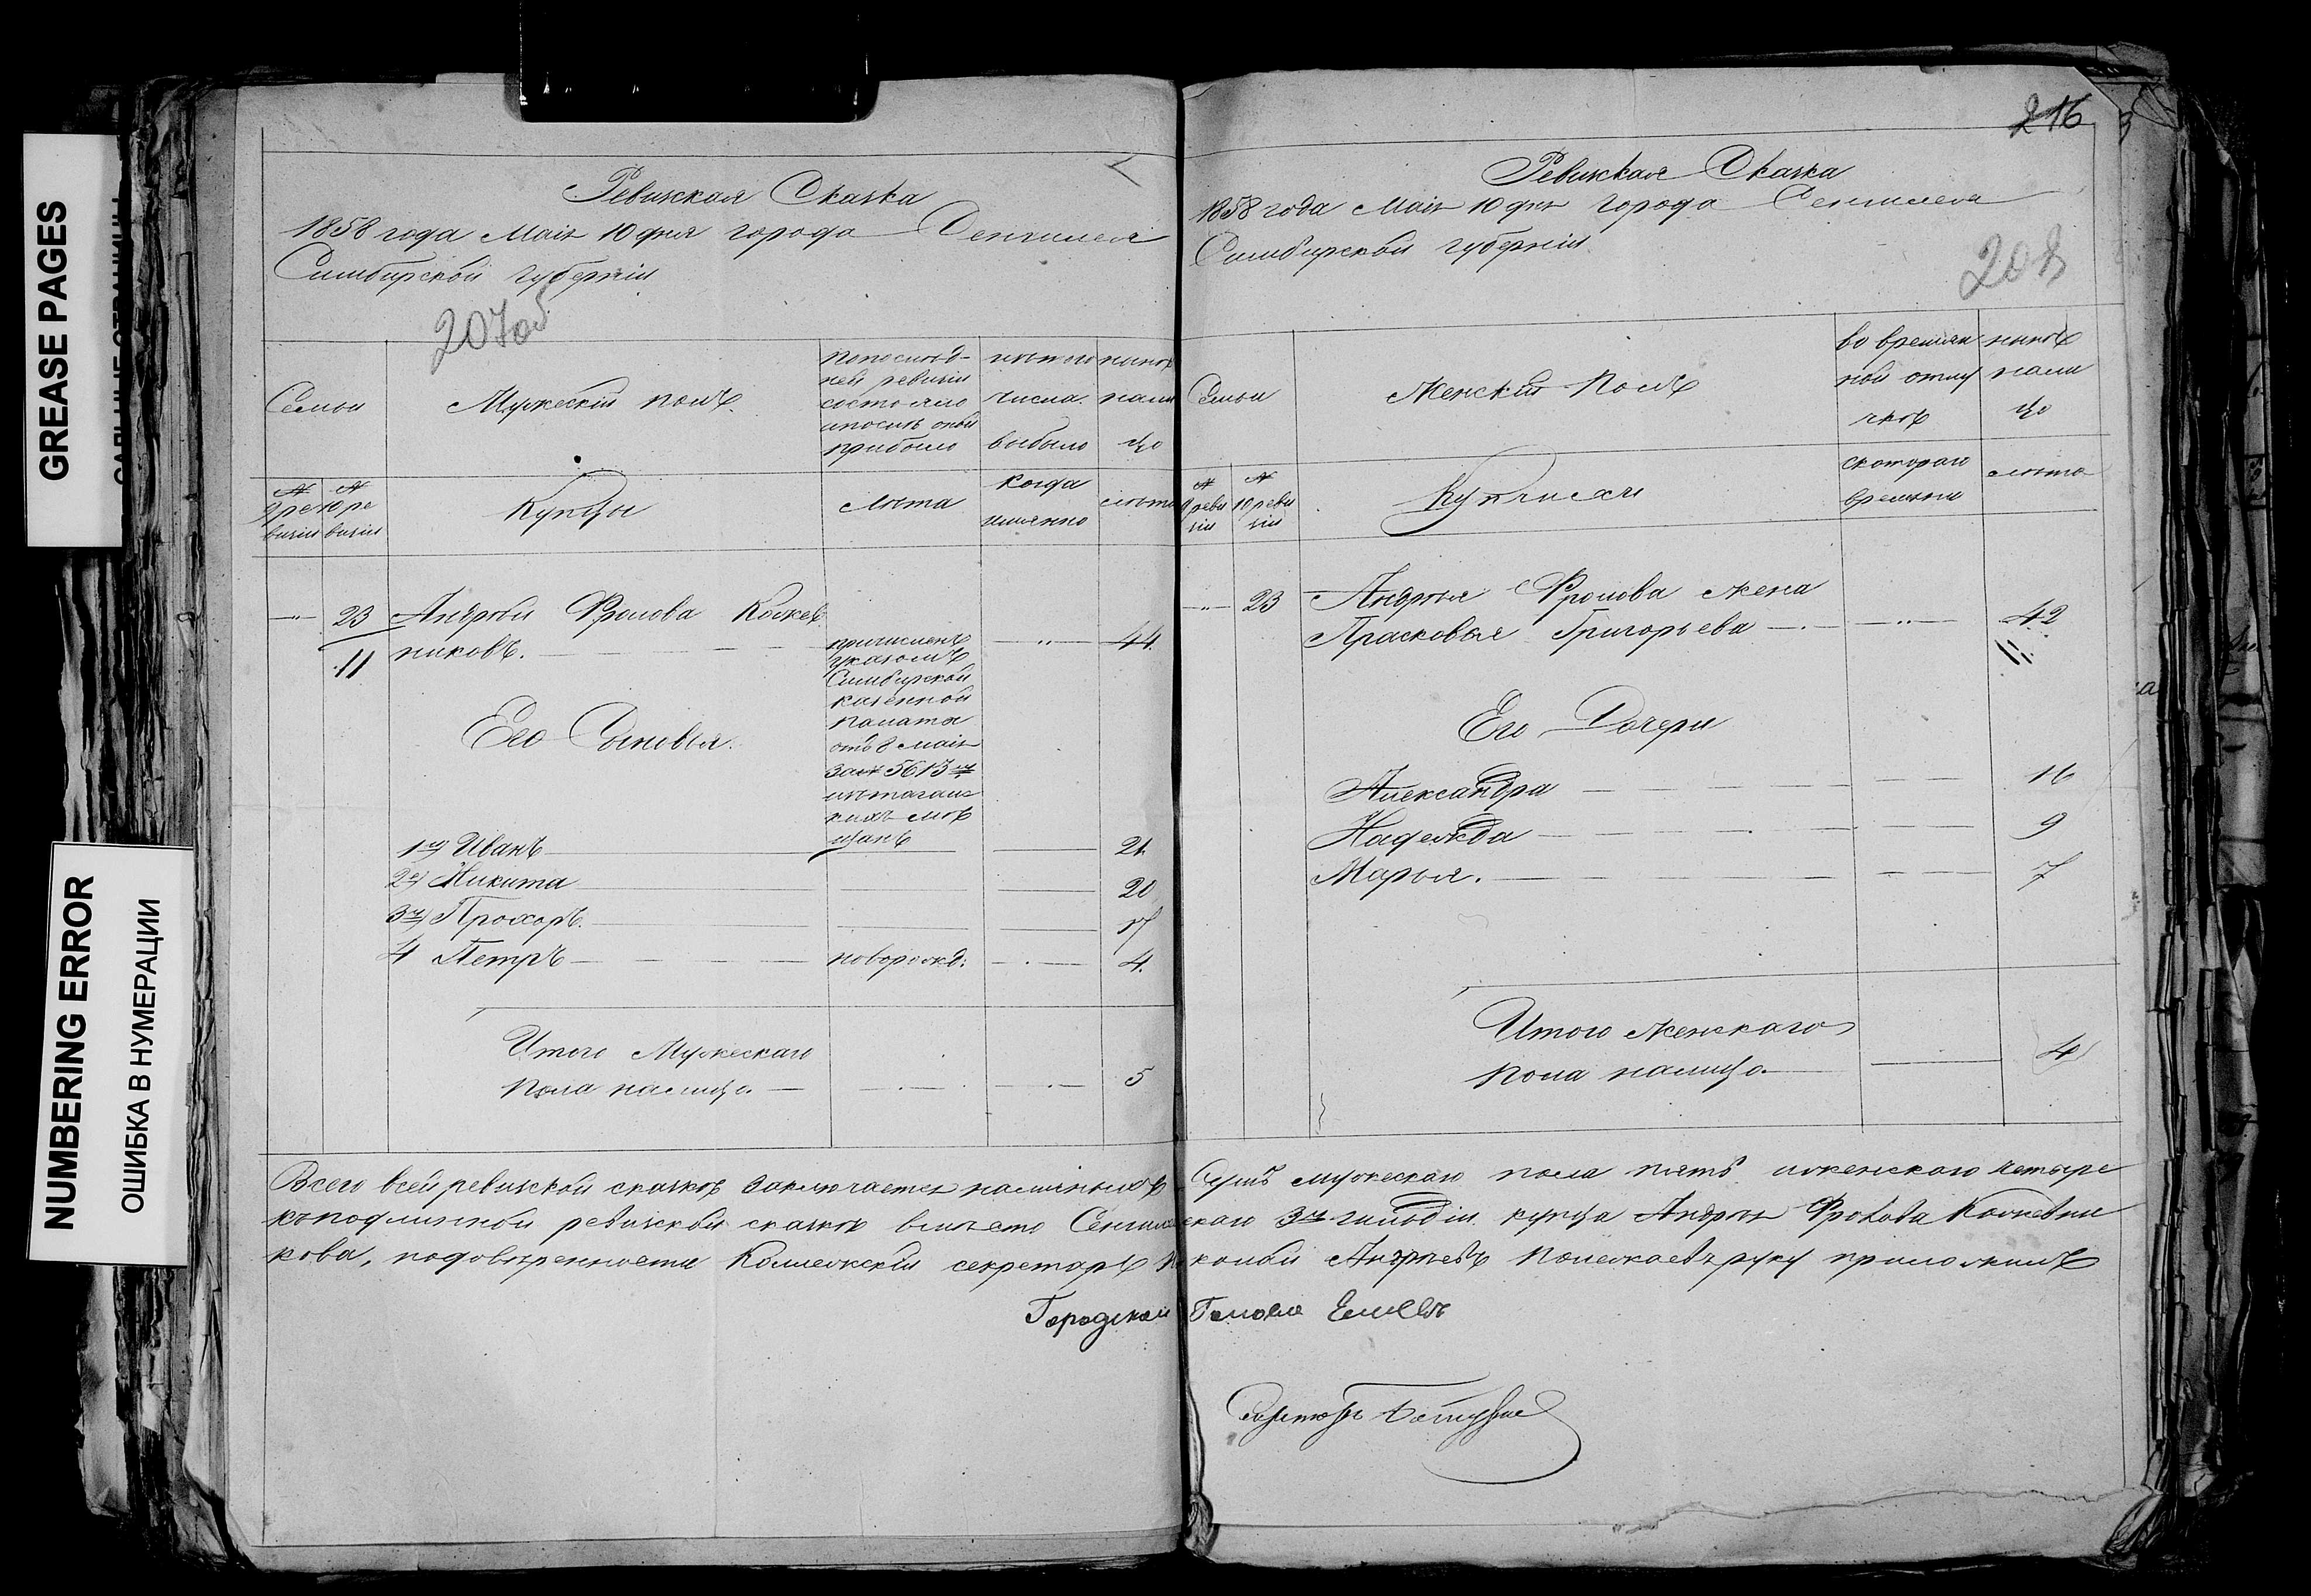 GREASE PAGES
NUMBERING ERROR
ОШИБКА В НУМЕРАЦИИ
Ревизская Сказка
1858 года Маія 10 дня города Сенгилея
Симбирской губерніи
207об
Семьи
Мужескій полъ.
По послѣд-
ней ревизіи
состояло
и послѣ оной
прибыло
изъ того
числа
выбыло
нынѣ
нали
цо
№
9 ре
визіи
№
10 ре
визіи
Купцы
лѣта
когда
именно
лѣта
23
11
Андрей Фролова Кожев
никовъ.
44.
причисленъ
указомъ
Симбирской
казенной
палаты
отъ 8 маія
за № 5613
Его Сыновья.
щанъ
1й Иванъ
21.
2й Никита
20
3й Прохоръ.
17
4 Петръ
новорожд.
4.
Итого Мужескаго
пола налицо.
5
216
Ревизская Сказка
1858 года Маія 10 дня города Сенгилея
Симбирской губерніи
208
Семьи
Женскій Полъ
во времен
ной отлу
чкѣ
нынѣ
нали
цо
№
9 реви
зіи
№
10 реви
зіи
Купчихи
съ котораго
времени
лѣта
23
Андрея Фролова жена
Прасковья Григорьева
42
Его Дочери
Александра
16
Надежда
9
Марья.
7
Итого женскаго
пола налицо.
4
Всего въ сей ревизской сказкѣ заключается наличныхъ душъ мужескаго пола пять и женскаго четыре
къ подлинной ревизской сказкѣ вмѣсто Сенгилеевскаго 3й гильдіи купца Андрея Фролова Кожевни
кова, по довѣренности Коллежскій секретарь Андреевъ Полежаевъ руку приложилъ
Городской Голова